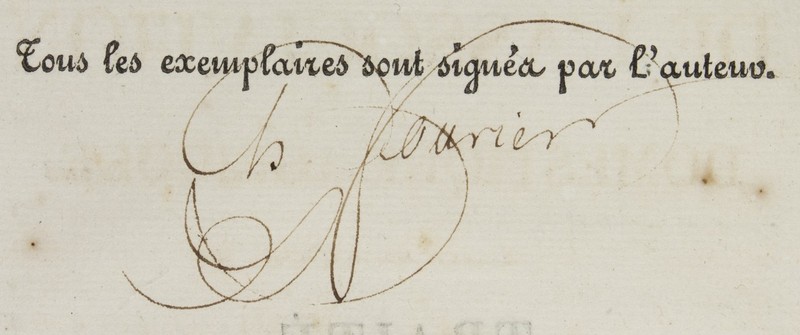 Tous les exemplaires sont signés par l'auteur.
Ch Fourier